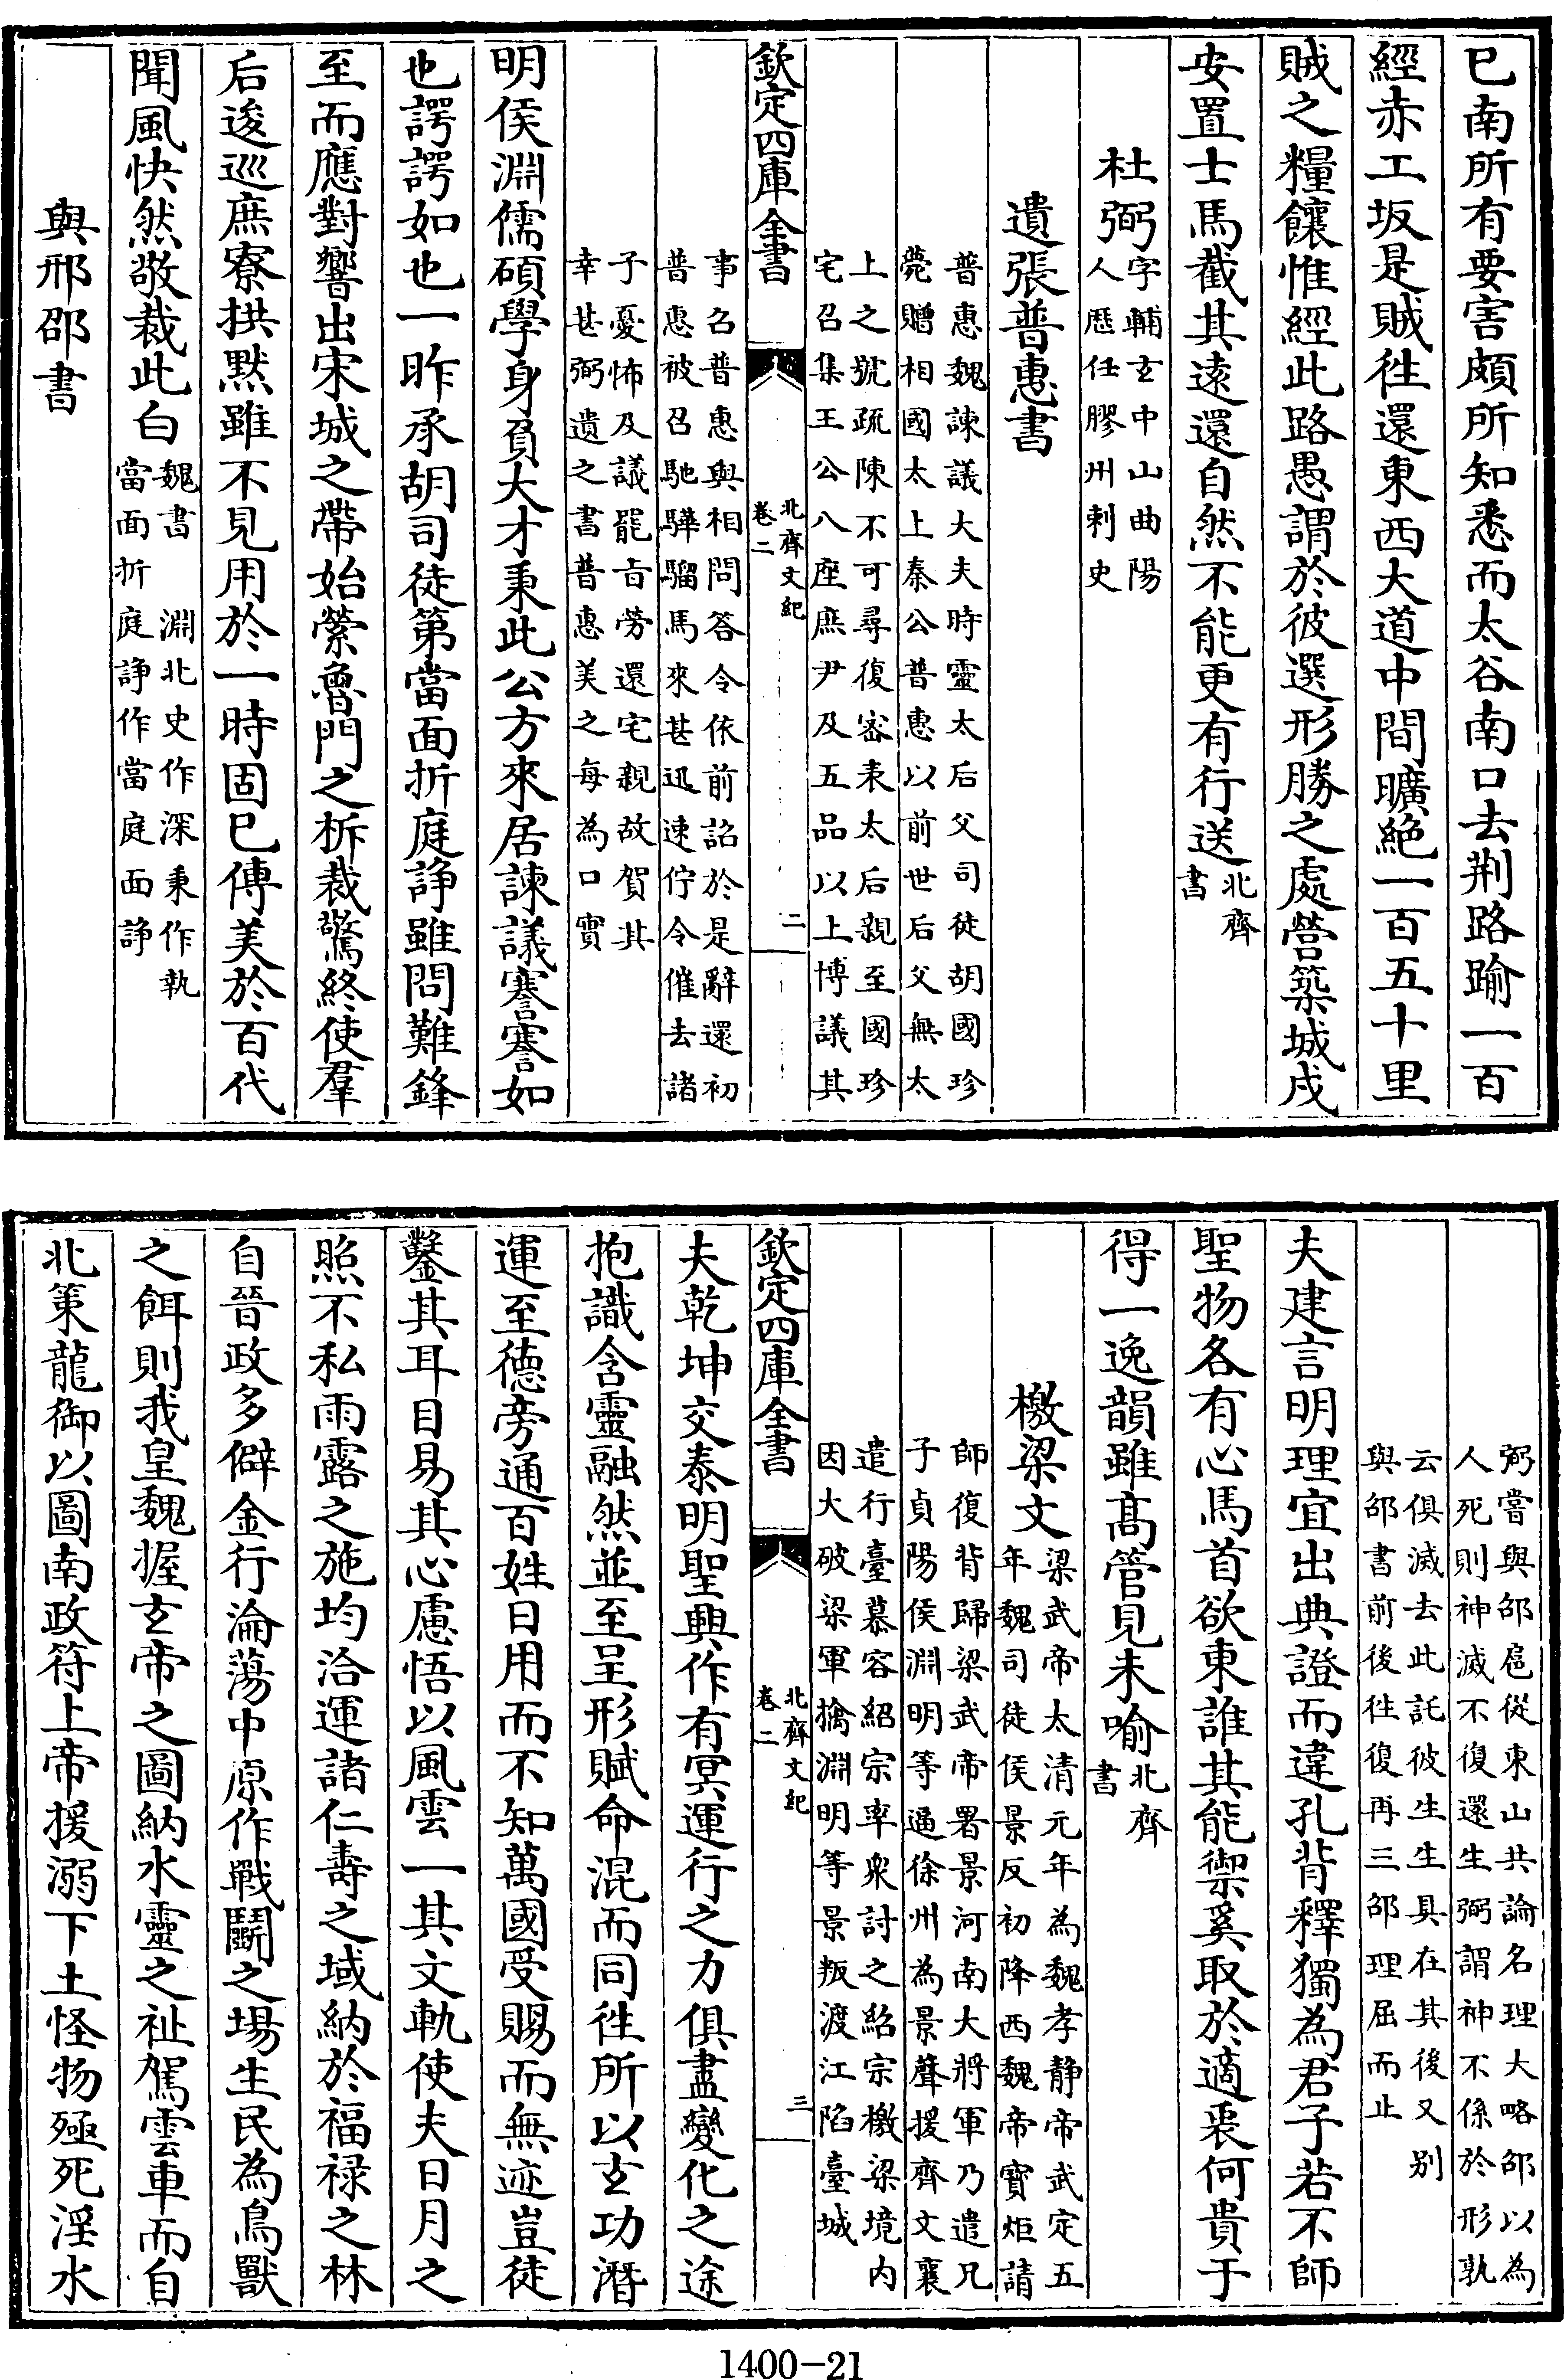 已南所有要害頗所知悉而太谷南口去荆路踰一百
經赤工坂是賊徃還東西大道中間曠絶一百五十里
賊之糧饟惟經此路愚謂於彼選形勝之處營築城戍
安置士馬截其遠還自然不能更有行送北齊
書
杜弼字輔玄中山曲陽
人歴任膠州刺史
遺張普惠書
普惠魏諫議大夫時靈太后父司徒胡國珍
薨贈相國太上秦公普惠以前世后父無太
上之號疏陳不可尋復宻表太后親至國珍
宅召集王公八座庶尹及五品以上博議其
欽定四庫全書
北齊文紀
卷二
二
事名普惠與相問答令依前詔於是辭還初
普惠被召馳驊騮馬來甚迅速佇令催去諸
子憂怖及議罷㫖勞還宅親故賀其
幸甚弼遺之書普惠美之每為口實
明侯淵儒碩學身負大才秉此公方來居諫議謇謇如
也諤諤如也一昨承胡司徒第當面折庭諍雖問難鋒
至而應對響出宋城之帶始縈魯門之柝裁驚終使羣
后逡巡庶寮拱默雖不見用於一時固已傳美於百代
聞風快然敬裁此白魏書 淵北史作深秉作執
當面折庭諍作當庭面諍
與邢邵書
弼嘗與邵扈從東山共論名理大略邵以為
人死則神滅不復還生弼謂神不係於形孰
云俱滅去此託彼生生具在其後又别
與邵書前後徃復再三邵理屈而止
夫建言明理宜出典證而違孔背釋獨為君子若不師
聖物各有心馬首欲東誰其能禦奚取於適衷何貴于
得一逸韻雖髙管見未喻北齊
書
檄梁文梁武帝太清元年為魏孝静帝武定五
年魏司徒侯景反初降西魏帝寳炬請
師復背歸梁武帝署景河南大將軍乃遣兄
子貞陽侯淵明等逼徐州為景聲援齊文襄
遣行臺慕容紹宗率衆討之紹宗檄梁境内
因大破梁軍擒淵明等景叛渡江陷臺城
欽定四庫全書
北齊文紀
卷二
三
夫乾坤交泰明聖興作有冥運行之力俱盡變化之途
抱識含靈融然並至呈形賦命混而同徃所以玄功潛
運至德旁通百姓日用而不知萬國受賜而無迹豈徒
鑿其耳目易其心慮悟以風雲一其文軌使夫日月之
照不私雨露之施均洽運諸仁壽之域納於福禄之林
自晉政多僻金行淪蕩中原作戰鬭之場生民為鳥獸
之餌則我皇魏握玄帝之圖納水靈之祉駕雲車而自
北策龍御以圖南政符上帝援溺下土怪物殛死淫水
1400-21